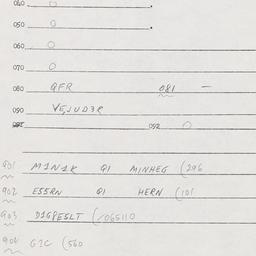 040 O
050 O
060 O
070 O
080 QFR 081 —
090 VEJUD3R
092 O
901 M1N1R Q1 MINHEG (296
902 ESSRN Q1 HERN (101
903 D1GPESLT (/065110
904 G2C (560